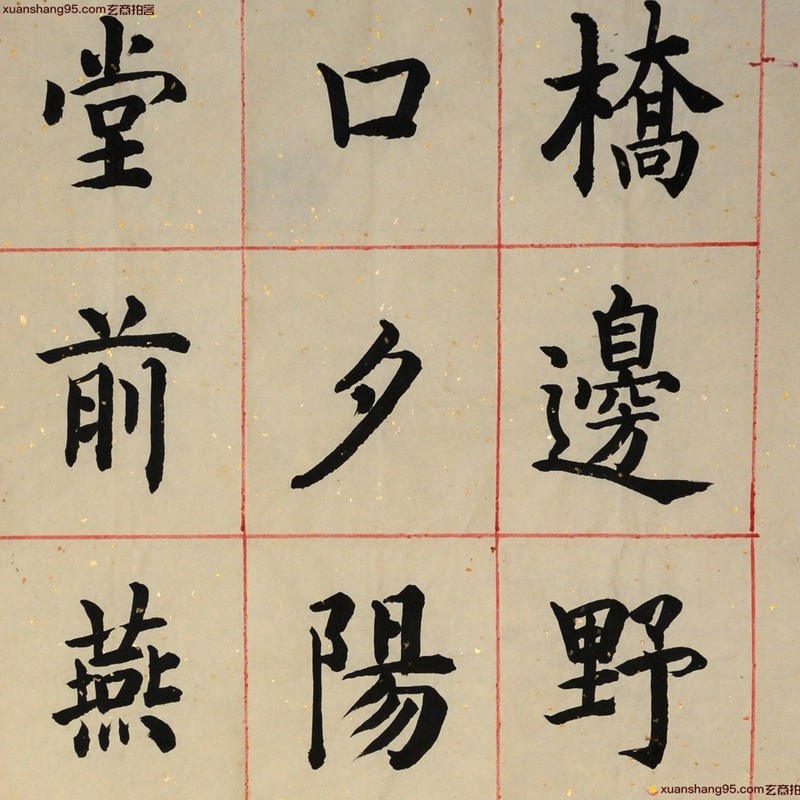 xuanshang95.com玄商拍客
橋邊野
口夕陽
堂前燕
xuanshang95.com玄商拍